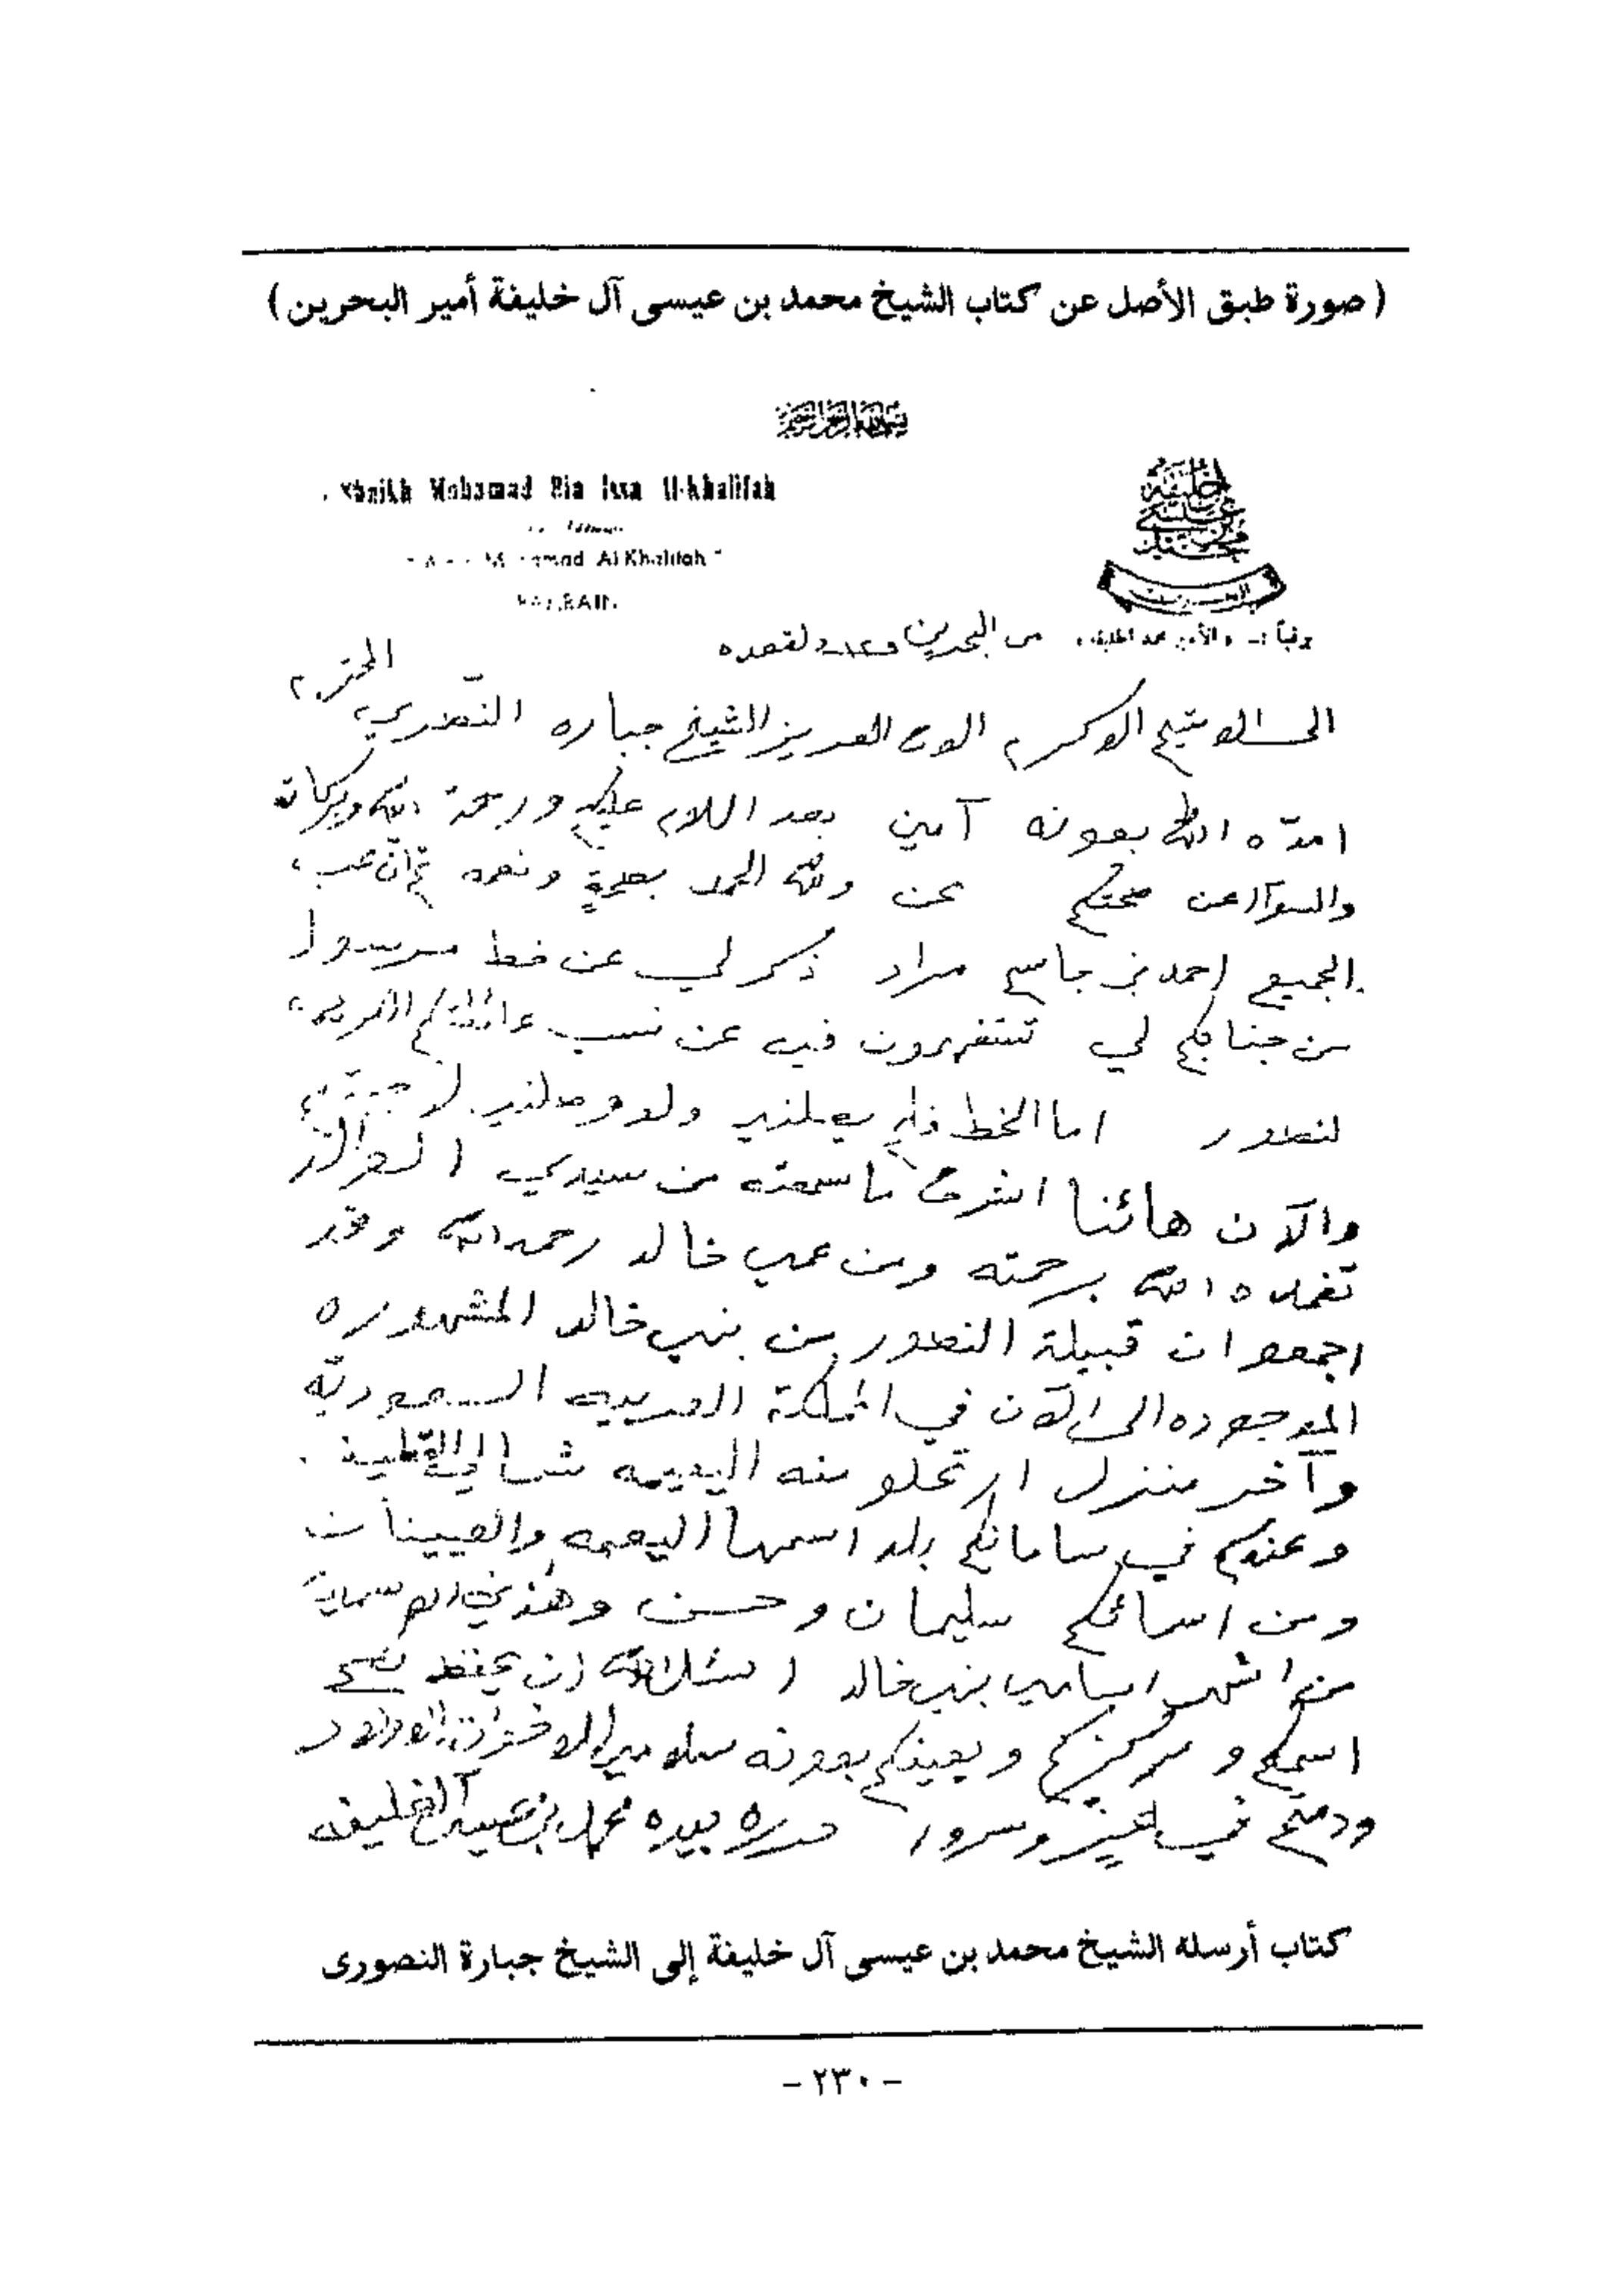 ( صورة طبق الأصل عن كتاب الشيخ محمد بن عيسى آل خليفة أمير البحرين )
Shaikh Mohamad Bin Issa Al-Khalifah
Al Khalifah "
BAHRAIN
خليفة
عيسى
بن
محمد
البحرين
برقياً :ـ
من البحرين
المحترم
الى الاكرم العزيز الشيخ جباره النصوري
امدّه الله بعونه آمين بعد السلام عليكم ورحمة الله وبركاته
والسوآل عن صحتكم نحن ولله الحمد بصحةٍ ونعمه ثم انّ محب
الجميع احمد بن جاسم مراد ذكر لي عن خط مرسول
من جنابكم لي تستفهمون فيه عن نسب عائلتكم الكريمه
لنصور اما الخط فلم يصلني ولو وصلني لاجبتكم
والآن هائنا اشرح ما سمعته من سيدي الوالد
تغمده الله برحمته ومن عمي خالد رحمه الله وقد
اجمعوا ان قبيلة النصور من بني خالد المشهوره
الموجوده الى الآن في المملكة العربيه السعوديّه
وآخر منزل ارتحلو منه شمالي القطيف .
وعندكم في بلد اسمها والعيينات
ومن اسمائكم سليمان وحسن وهذي الاسماء
من اشهر اسامي بني خالد اسئل الله ان يحفظ
اسمكم و مركزكم و بعونه
ودمتم في عز وسرور حرره بيده محمد بن عيسى آل خليفه
كتاب أرسله الشيخ محمد بن عيسى آل خليفة إلى الشيخ جبارة النصورى
- ٢٣٠ -